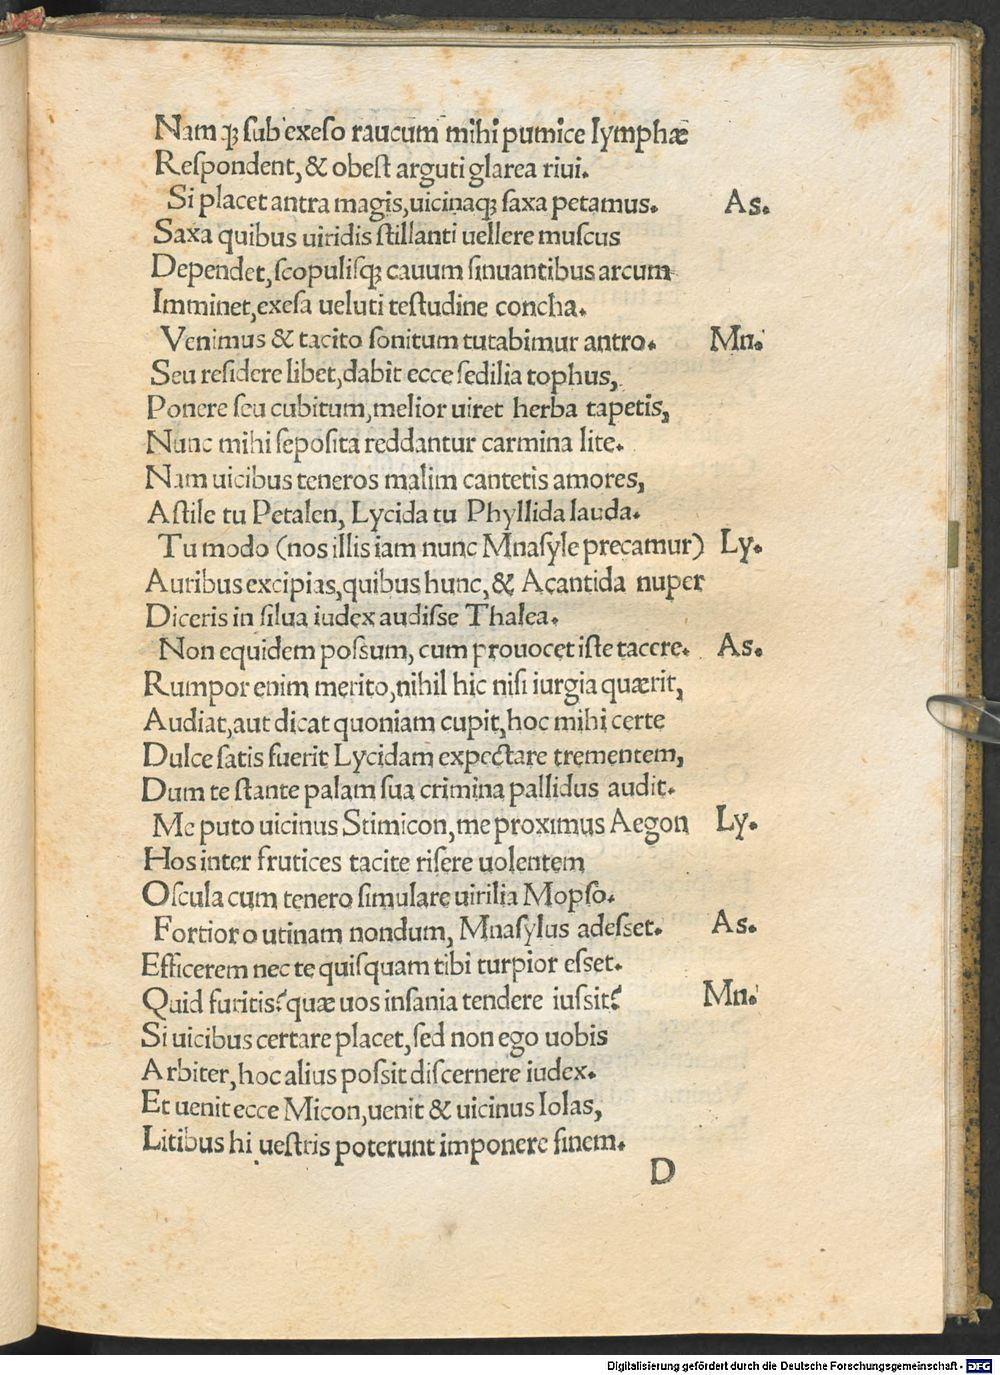 Nam qꝫ sub exeso raucum mihi pumice lymphæ
Respondent, & obest arguti glarea riui.
Si placet antra magis, uicinaqꝫ saxa petamus. As.
Saxa quibus uiridis stillanti uellere muscus
Dependet, scopulisqꝫ cauum sinuantibus arcum
Imminet, exesa ueluti testudine concha.
Venimus & tacito sonitum tutabimur antro. Mn.
Seu residere libet, dabit ecce sedilia tophus,
Ponere seu cubitum, melior uiret herba tapetis,
Nunc mihi seposita reddantur carmina lite.
Nam uicibus teneros malim cantetis amores,
Astile tu Petalen, Lycida tu Phyllida lauda.
Tu modo (nos illis iam nunc Mnasyle precamur) Ly.
Auribus excipias, quibus hunc, & Acantida nuper
Diceris in silua iudex audisse Thalea.
Non equidem possum, cum prouocet iste tacere. As.
Rumpor enim merito, nihil hic nisi iurgia quærit,
Audiat, aut dicat quoniam cupit, hoc mihi certe
Dulce satis fuerit Lycidam expectare trementem,
Dum te stante palam sua crimina pallidus audit.
Me puto uicinus Stimicon, me proximus Aegon Ly.
Hos inter frutices tacite risere uolentem
Oscula cum tenero simulare uirilia Mopso.
Fortior o utinam nondum, Mnasylus adesset. As.
Efficerem nec te quisquam tibi turpior esset.
Quid furitis? quæ uos insania tendere iussit? Mn.
Si uicibus certare placet, sed non ego uobis
Arbiter, hoc alius possit discernere iudex.
Et uenit ecce Micon, uenit & uicinus Iolas,
Litibus hi uestris poterunt imponere finem.
D
Digitalisierung gefördert durch die Deutsche Forschungsgemeinschaft - DFG